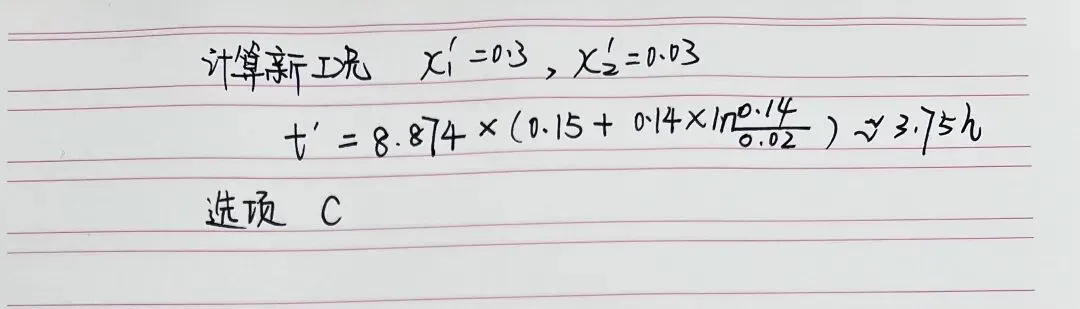 计算新工况 X₁′=0.3，X₂′=0.03
t′ = 8.874 × (0.15 + 0.14 × ln 0.14/0.02) ≈ 3.75h
选项 C